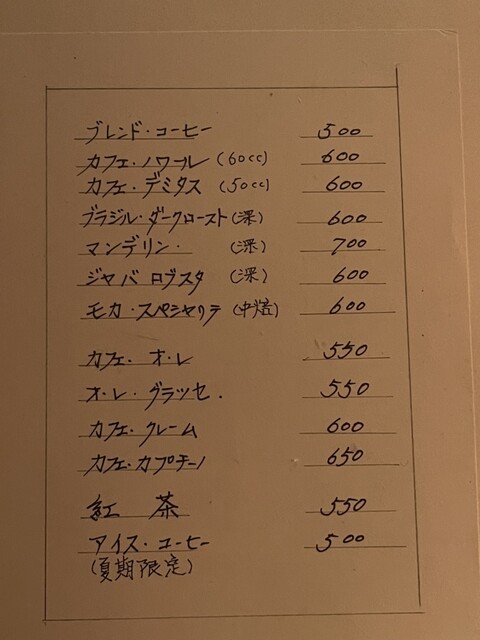 ブレンド・コーヒー 500
カフェ・ノワール (60cc) 600
カフェ・デミタス (50cc) 600
ブラジル・ダークロースト (深) 600
マンデリン・ (深) 700
ジャバ ロブスタ (深) 600
モカ・スペシャリテ (中煎) 600
カフェ・オ・レ 550
オ・レ・グラッセ. 550
カフェ・クレーム 600
カフェ・カプチーノ 650
紅 茶 550
アイス・コーヒー 500
(夏期限定)